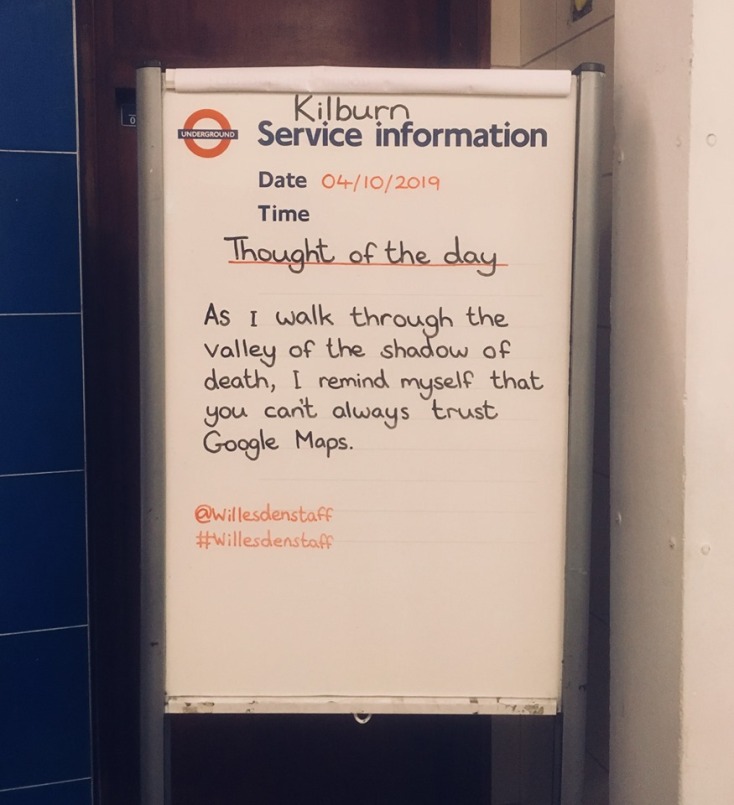 Kilburn
UNDERGROUND
Service information
Date 04/10/2019
Time
Thought of the day
As I walk through the
valley of the shadow of
death, I remind myself that
you can't always trust
Google Maps.
@willesdenstaff
#willesdenstaff